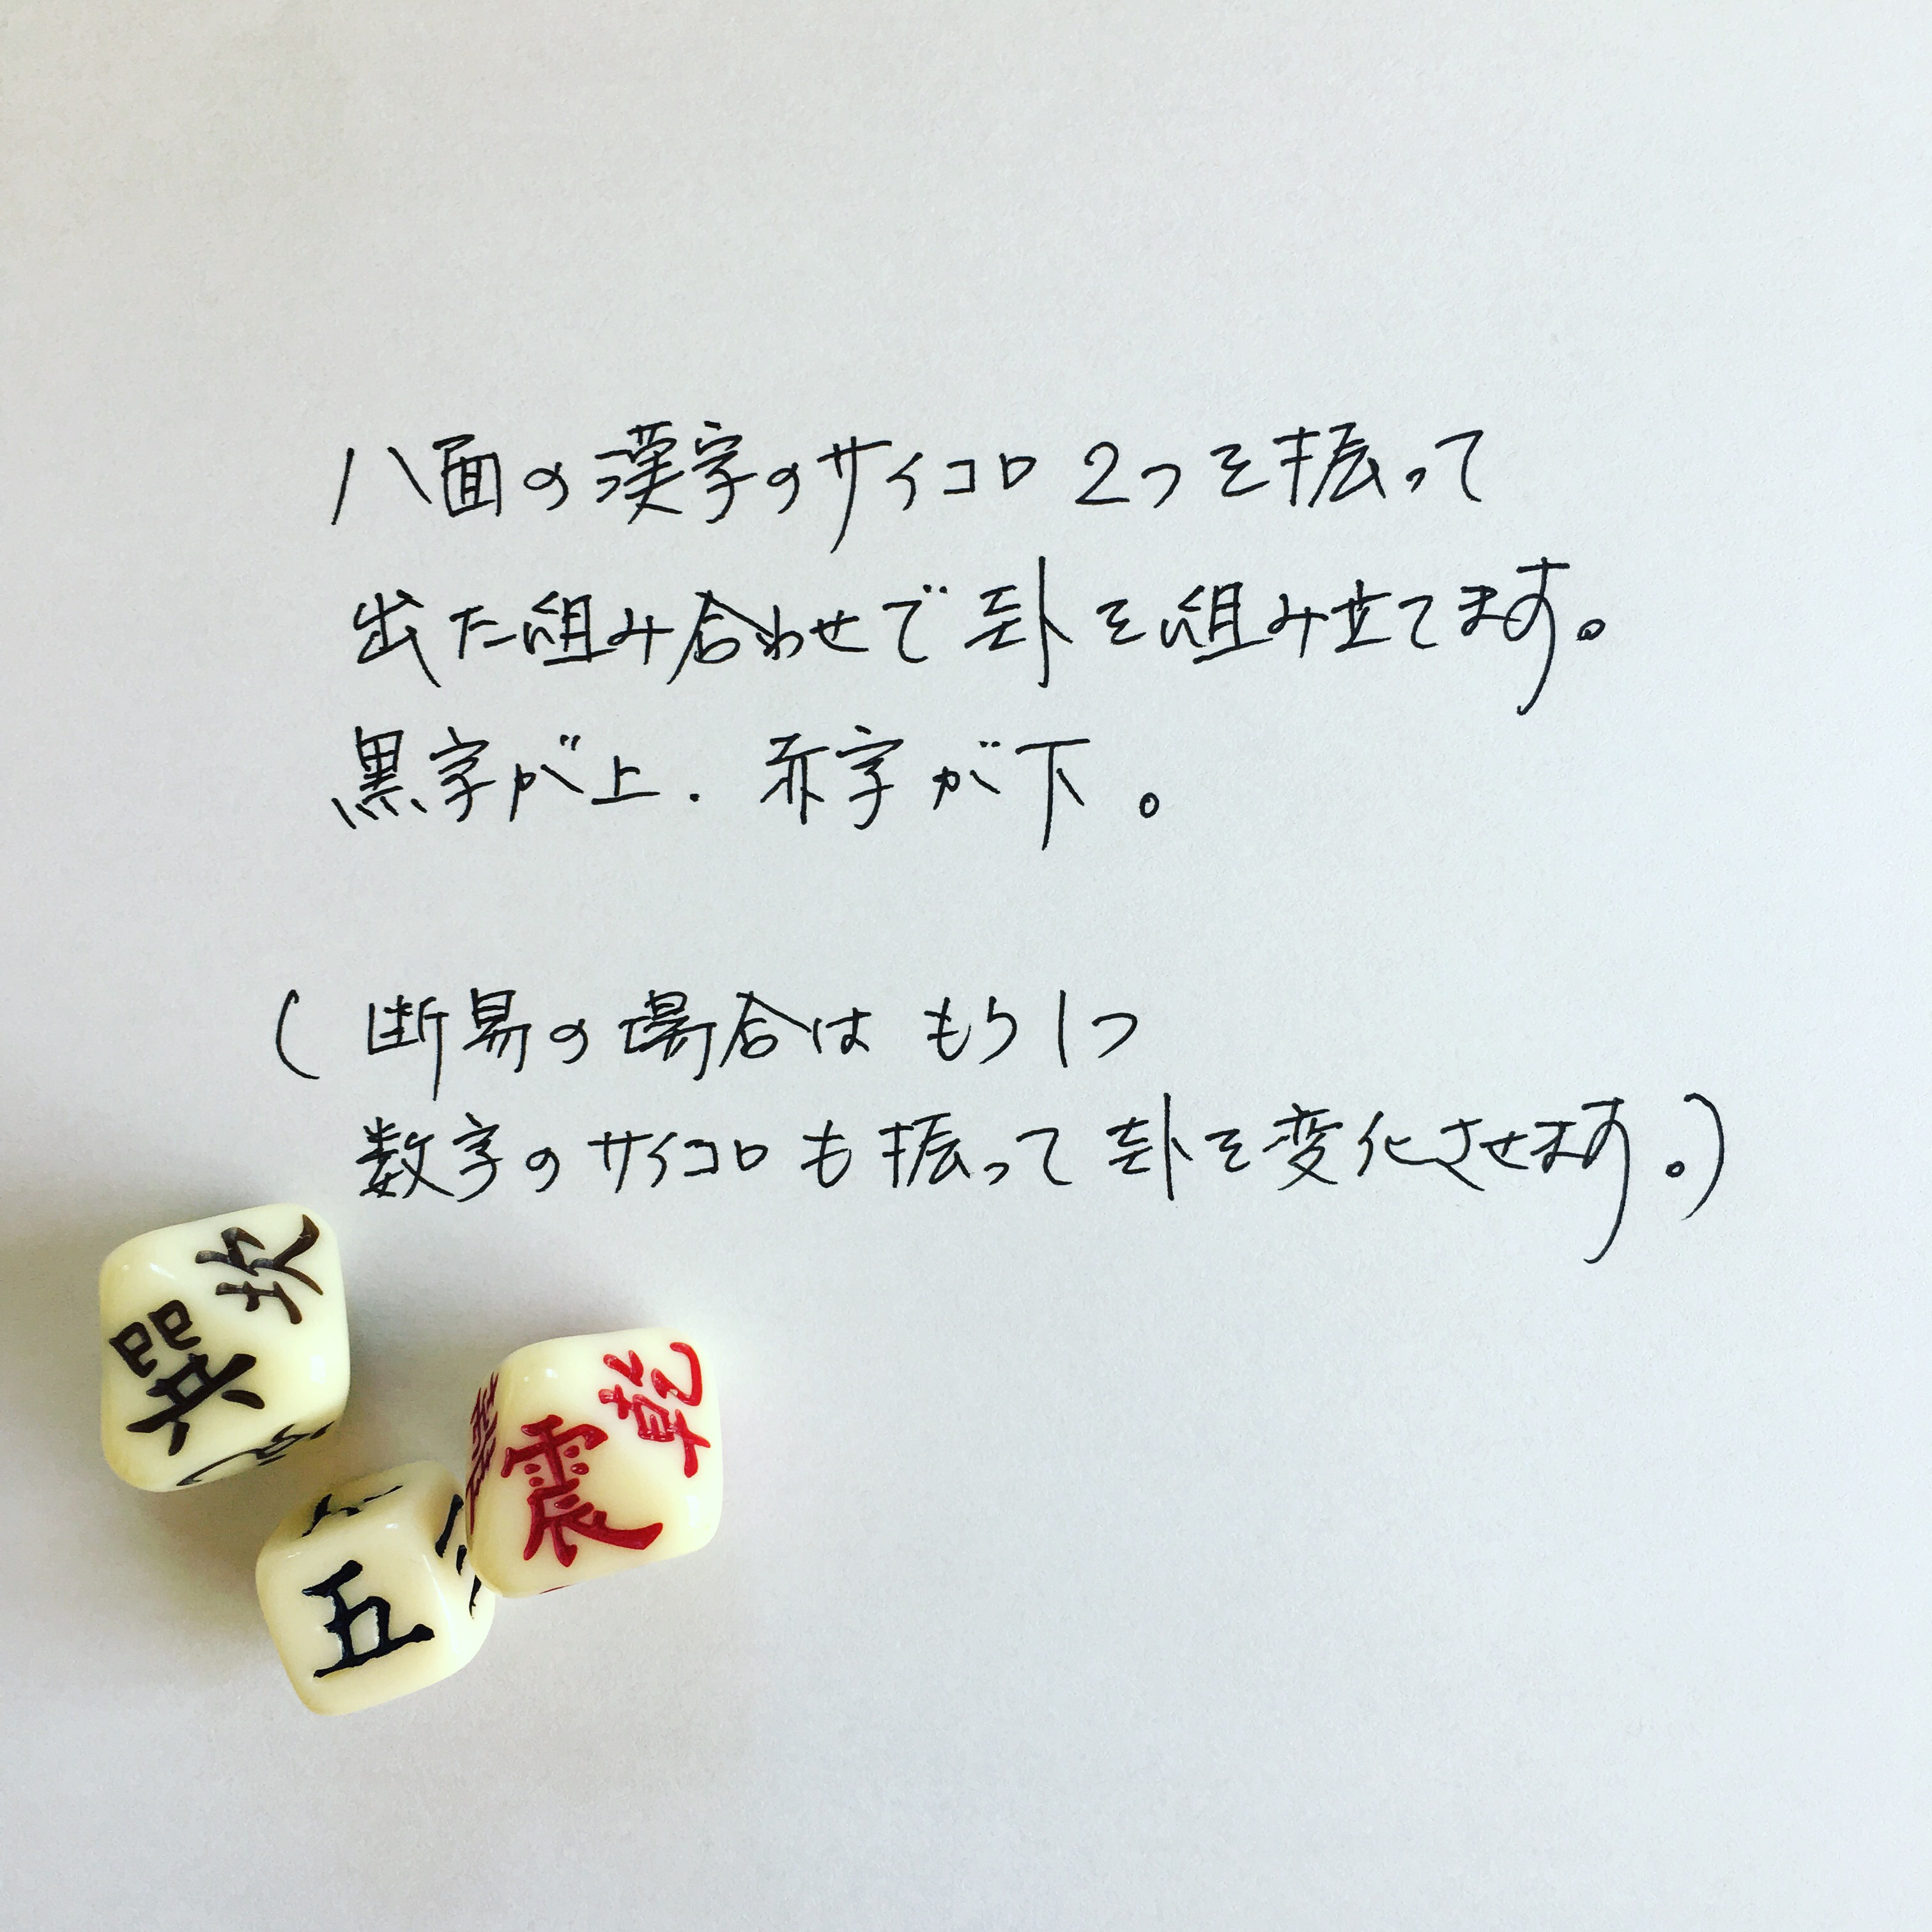 八面の漢字のサイコロ2つを振って
出た組み合わせで卦を組み立てます。
黒字が上.赤字が下。
(断易の場合はもう1つ
数字のサイコロも振って卦を変化させます。)
坎
巽
乾
震
五